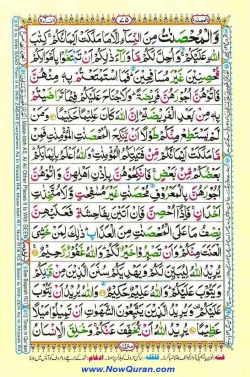 وَّالْمُحْصَنٰتُ مِنَ النِّسَآءِ اِلَّا مَا مَلَكَتْ اَيْمَانُكُمْ كِتٰبَ
اللّٰهِ عَلَيْكُمْ وَاُحِلَّ لَكُمْ مَّا وَرَآءَ ذٰلِكُمْ اَنْ تَبْتَغُوْا بِاَمْوَالِكُمْ
مُّحْصِنِيْنَ غَيْرَ مُسٰفِحِيْنَ فَمَا اسْتَمْتَعْتُمْ بِهٖ مِنْهُنَّ
فَاٰتُوْهُنَّ اُجُوْرَهُنَّ فَرِيْضَةً وَلَا جُنَاحَ عَلَيْكُمْ فِيْمَا تَرٰضَيْتُمْ
بِهٖ مِنْۢ بَعْدِ الْفَرِيْضَةِ اِنَّ اللّٰهَ كَانَ عَلِيْمًا حَكِيْمًا وَمَنْ
لَّمْ يَسْتَطِعْ مِنْكُمْ طَوْلًا اَنْ يَّنْكِحَ الْمُحْصَنٰتِ الْمُؤْمِنٰتِ فَمِنْ
مَّا مَلَكَتْ اَيْمَانُكُمْ مِّنْ فَتَيٰتِكُمُ الْمُؤْمِنٰتِ وَاللّٰهُ اَعْلَمُ
بِاِيْمَانِكُمْ بَعْضُكُمْ مِّنْۢ بَعْضٍ فَانْكِحُوْهُنَّ بِاِذْنِ اَهْلِهِنَّ وَاٰتُوْهُنَّ
اُجُوْرَهُنَّ بِالْمَعْرُوْفِ مُحْصَنٰتٍ غَيْرَ مُسٰفِحٰتٍ وَّلَا مُتَّخِذٰتِ
اَخْدَانٍ فَاِذَآ اُحْصِنَّ فَاِنْ اَتَيْنَ بِفَاحِشَةٍ فَعَلَيْهِنَّ
نِصْفُ مَا عَلَى الْمُحْصَنٰتِ مِنَ الْعَذَابِ ذٰلِكَ لِمَنْ خَشِيَ
الْعَنَتَ مِنْكُمْ وَاَنْ تَصْبِرُوْا خَيْرٌ لَّكُمْ وَاللّٰهُ غَفُوْرٌ رَّحِيْمٌ
يُرِيْدُ اللّٰهُ لِيُبَيِّنَ لَكُمْ وَيَهْدِيَكُمْ سُنَنَ الَّذِيْنَ مِنْ قَبْلِكُمْ
وَيَتُوْبَ عَلَيْكُمْ وَاللّٰهُ عَلِيْمٌ حَكِيْمٌ وَاللّٰهُ يُرِيْدُ اَنْ
يَّتُوْبَ عَلَيْكُمْ وَيُرِيْدُ الَّذِيْنَ يَتَّبِعُوْنَ الشَّهَوٰتِ اَنْ تَمِيْلُوْا مَيْلًا
عَظِيْمًا يُرِيْدُ اللّٰهُ اَنْ يُّخَفِّفَ عَنْكُمْ وَخُلِقَ الْاِنْسَانُ
www.NowQuran.com